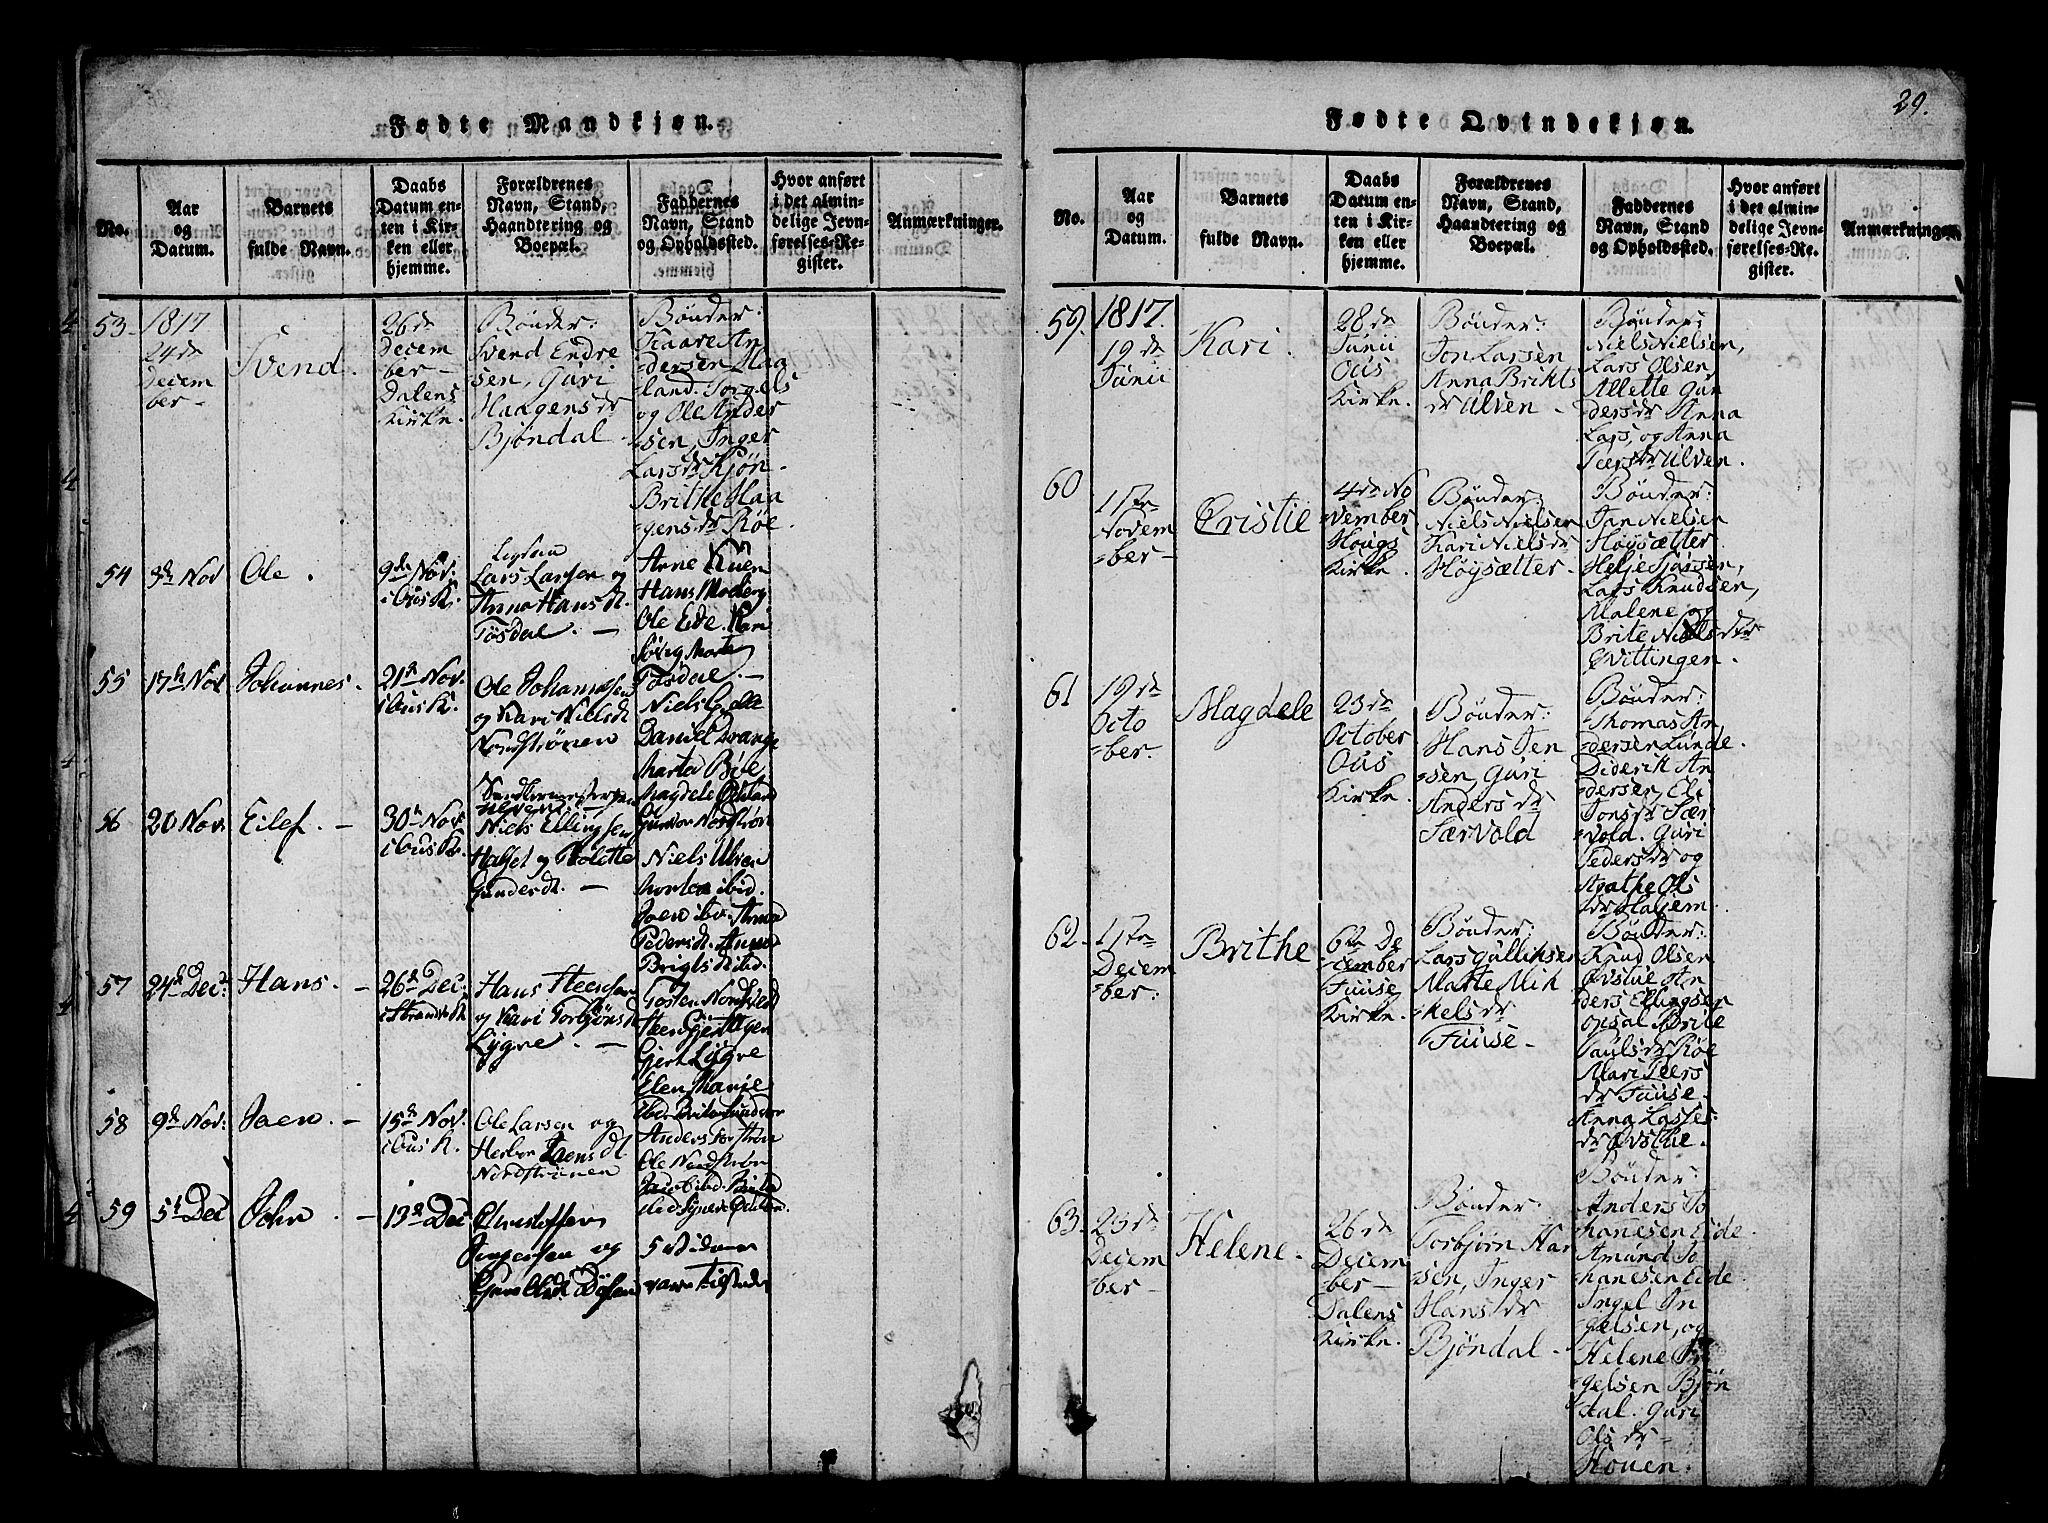 29.
Fødte Mandkjøn.
No.
Aar
og
Datum.
Barnets
fulde Navn.
Daabs
Datum en-
ten i Kir-
ken eller
hjemme.
Forældrenes
Navn, Stand,
Haandtering og
Boepæl.
Faddernes
Navn, Stand
og Opholdssted.
Hvor anført
i det almin-
delige Jevn-
førelses-Re-
gister.
Anmærkninger.
53.
1817
24de
Decem
ber-
Svend.
26de
Decem
ber-
Dalens
Kirke.
Bønder:
Svend Endre
sen, Guri
Haagensdr
Bjøndal.
Bønder:
Kaare An
dersen Haa
land. Torgels
og Ole Ander
sen, Inger
Larsdr Kjøn-
Brithe Haa
gensdr Røe.
54
3de Nov
Ole.
9de Nov:
i Ous K.
Lars Larsen og
Anna Hansdt.
Tøsdal. -
Arne Kuen
Hans Moberg
Ole Eide. Kari
Marte
Tøsdal. -
55
17de Nov
Johannes.
21de Nov.
i Ous K.
Ole Johannesen
og Kari Nielsdt
Nordstrønen
Niels
Daniel Drange
Marta Bøe
Magdele
Nordstrøn
56
20 Nov.
Eilef. -
30te Nov:
i Ous K.
Niels Ellingsen
og
Gundersdt. -
Niels Ulven
Morten ibid.
Joen ibid. Anna
Pedersdt. Anna
Brigtsdt ibd.
57
24de Dec:
Hans. -
26de Dec.
i Strandv. K
Hans Steensen
og Kari Torbjønsdt
Lygre. -
Gjert Lygre
Elen Marie
58
9de Nov:
Joen. -
15de Nov.
i Ous K.
Ole Larsen og
Joensdt.
Nordstrønen
Anders
Ole Nordstrøn
59
5t Dec
John -
13de Dec
Christoffer
og
5 Vidner
vare tilstede
Fødte Qvindekjøn.
No.
Aar
og
Datum.
Barnets
fulde Navn.
Daabs
Datum en-
ten i Kir-
ken eller
hjemme.
Forældrenes
Navn, Stand,
Haandtering og
Boepæl.
Faddernes
Navn, Stand
og Opholdsted.
Hvor anført
i det almin-
delige Jevn-
førelses-Re-
gister.
Anmærkninger.
59.
1817.
19de
Junii
Kari.
28de
Junii
Ous
Kirke.
Bønder:
Jon Larsen
Anna Brikts
dr Ulven.
Bønder:
Niels Nielsen,
Lars Olsen,
Allette Gun
dersdr Anna
Lars, og Anna
Peersdr Ulven.
60
1ste
Novem
ber-
Cristie
4de No
vember
Hougs
Kirke.
Bønder:
Niels Nielsen
Kari Nielsdr
Høysætter.
Bønder:
Jan Nielsen
Høysætter
Helje
Lars Knudsen,
Malene og
Brite Nielsdtr
Qvittingen.
61
19de
Octo
ber.
Magdele
23de
October
Ous
Kirke.
Bønder:
Hans Jen
sen, Guri
Andersdr
Særvold
Bønder:
Thomas An
dersen Lunde.
Diderik An
dersen, Eli
Jonsdr Sær
vold. Guri
Pedersdr og
Agathe Ols
dr Haljem.
62.
1ste
Decem
ber:
Brithe
6te De
cember
Fuuse
Kirke.
Bønder:
Lars Gulliksen
Marte Mik
kelsdr
Fuuse-
Bønder:
Knud Olsen
Øvstue An
ders Ellingsen
Opsal Brite
Paulsdr Røe
Mari Peers
dr Fuuse.
Anna Lasses
dr Øvsthe.
63.
23de
Decem
ber-
Helene.
26de
Decem
ber-
Dalens
Kirke.
Bønder:
Torbjørn Har
sen, Inger
Hansdr
Bjøndal.
Bønder:
Anders Jo
hanesen Eide.
Amund Jo
hanesen Eide
Ingel In
gelsen, og
Helene In
gelsen Bjøn
dal. Guri
Olsdr-
Houen.